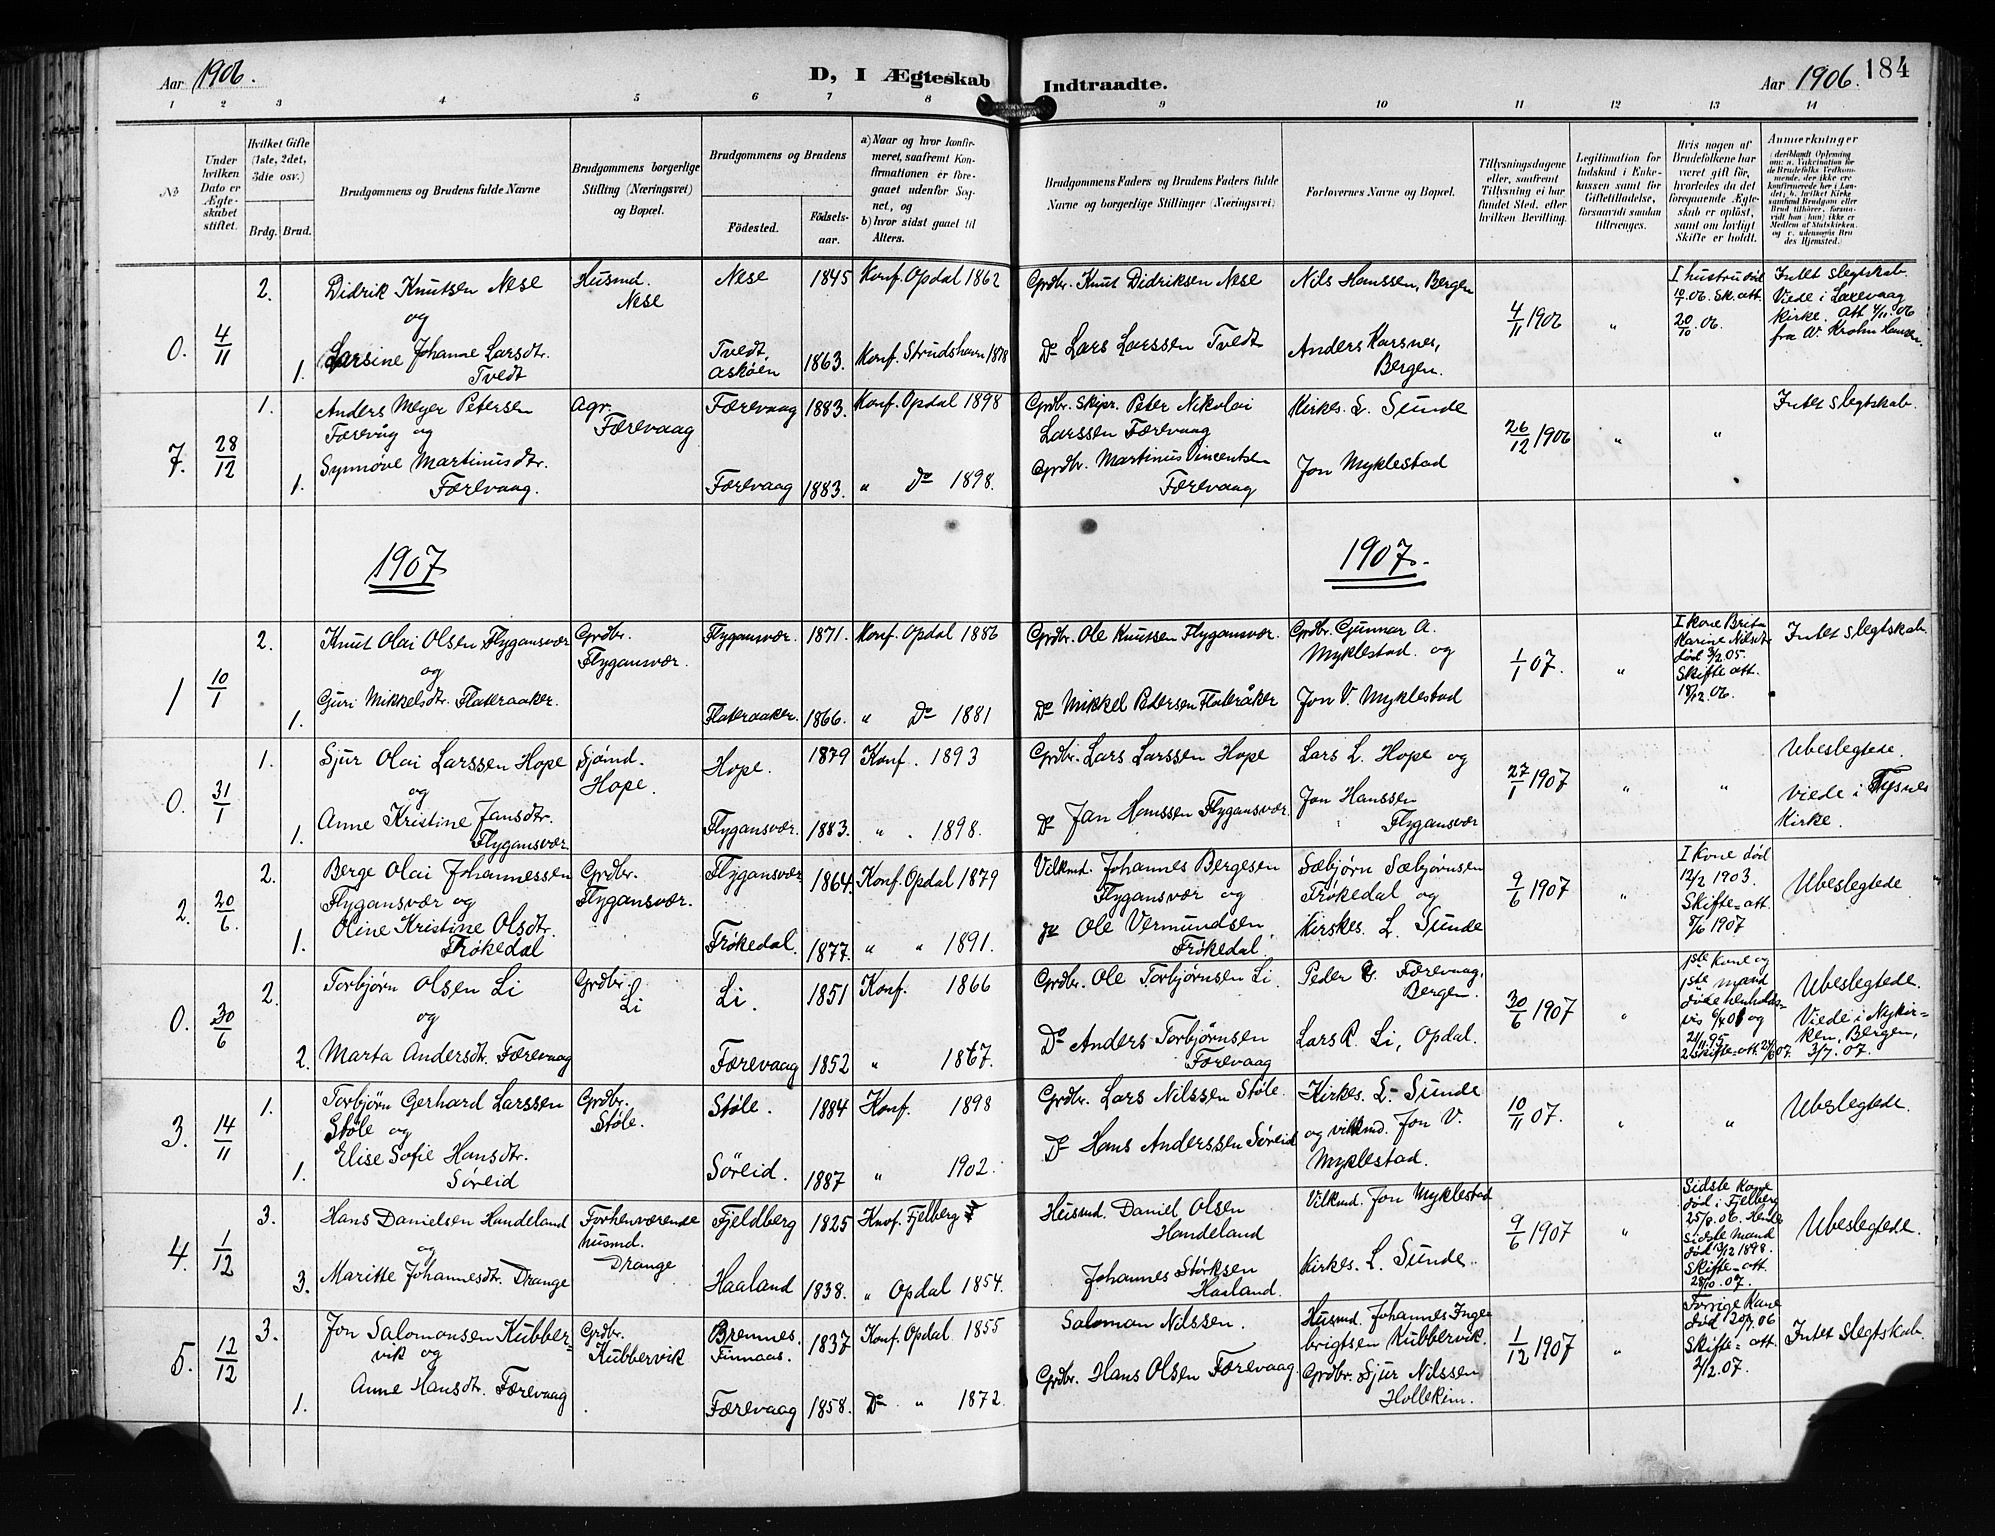 Aar 1906.
D, I Ægteskab Indtraadte.
Aar 1906. 184
1 2 3 4 5 6 7 8 9 10 11 12 13 14
№
Under hvilken Dato er Ægteskabet stiftet.
Hvilket Gifte (1ste, 2det, 3dte osv.)
Brdg. Brud.
Brudgommens og Brudens fulde Navne
Brudgommens borgerlige Stilling (Næringsvei) og Bopæl.
Brudgommens og Brudens
Födested. Födsels-aar.
a) Naar og hvor konfirmeret, saafremt Konfirmationen er foregaaet udenfor Sognet, og
b) hvor sidst gaaet til Alters.
Brudgommens Faders og Brudens Faders fulde Navne og borgerlige Stillinger (Næringsvei)
Forlovernes Navne og Bopæl.
Tillysningsdagene eller, saafremt Tillysning ei har fundet Sted, efter hvilken Bevilling.
Legitimation for Indskud i Enkekassen samt for Giftetilladelse, forsaavidt saadan tiltrænges.
Hvis nogen af Brudefolkene har været gift för, hvorledes da det foregaaende Ægteskab er oplöst, samt om lovligt Skifte er holdt.
Anmerkninger
0. 4/11 2. Didrik Knutsen Nese Husmd. Nese Nese 1845 Konf. Opdal 1862 Grdbr. Knut Didriksen Nese Nils Hanssen, Bergen 4/11 1906 " I hustru död 10/1.06. Sk. att. 20/10.06. Intet slegtskab. Viede i Laxevaag kirke. att 4/11.06 fra W. Krohn Hansen.
og
1. Larsine Johanne Larsdtr. Tvedt Tvedt, Askøen 1863. Konf. Strudshavn 1878 Do Lars Larssen Tvedt Anders Karsnes, Bergen.
7. 28/12 1. Anders Meyer Petersen Færevåg og Agr. Færevaag Færevaag 1883. Konf. Opdal 1898 Grdbr. Skipr. Peter Nikolai Larssen Færevaag Kirkes. L. Sunde 26/12 1906 " " Intet slegtskab.
1. Synnøve Martinusdtr. Færevaag. Færevaag 1883. " Do 1898. Grdbr. Martinus Vincentsen Færevaag Jon Myklestad
1907 1907.
1 10/1 2. Knut Olai Olsen Flygansvær Grdbr. Flygansvær. Flygansvær. 1871. Konf. Opdal 1886 Grdbr. Ole Knutsen Flygansvær. Grdbr. Gunnar A. Myklestad og 1/1 07. " I kone Brita Karine Nilsdtr død 3/2 05. Skifte att. 18/12 06. Intet slegtskab.
og
1. Guri Mikkelsdtr. Flateraaker. Flateraaker. 1866. " Do 1881 Do Mikkel Pedersen Flateråker Jon V. Myklestad
0. 31/1 1. Sjur Olai Larssen Hope Sjømd. Hope. Hope. 1879 Konf. 1893 Grdbr. Lars Larssen Hope Lars L. Hope og 27/1 1907 " " Ubeslegtede viede i Tysnes Kirke.
og
1. Anne Kristine Jansdtr. Flygansvær Flygansvær. 1883. " . 1898. Do Jan Hanssen Flygansvær Jon Hanssen Flygansvær
2. 20/6 2. Berge Olai Johannessen Flygansvær og Grdbr. Flygansvær. Flygansvær 1864. Konf. Opdal 1879 Vilkmd. Johannes Bergesen Flygansvær og Sæbjørn Sæbjørnsen Frøkedal og 9/6 1907 " I kone død 12/2 1903. Skifte-att. 8/6 1907 Ubeslegtede
1. Oline Kristine Olsdtr. Frøkedal Frøkedal. 1877. " " 1891. do Ole Vermundsen, Frøkedal Kirkes. L. Sunde
0. 30/6 2. Torbjørn Olsen Li Grdbr. Li Li. 1851 Konf. 1866 Grdbr. Ole Torbjørnsen Li. Peder Færevaag, Bergen. 30/6 1907 " 1ste kone og 1ste mand døde henholdsvis og Ubeslegtede. Viede i Nykirken, Bergen, 3/7. 07.
og
2. Marta Andersdtr. Færevaag Færevaag 1852 " 1867. Do Anders Torbjørnsen Færevaag Lars R. Li, Opdal.
3. 14/11 1. Torbjørn Gerhard Larssen Støle og Grdbr. Støle. Støle. 1884 Konf. 1898 Grdbr. Lars Nilssen Støle. Kirkes. L. Sunde 10/11 07. " " Ubeslegtede.
1. Elise Sofie Hansdtr. Søreid Søreid. 1887 " 1902. Do Hans Anderssen Søreid og vilkmd. Jon V. Myklestad.
4. 1/12 3. Hans Danielsen Handeland Forhenværende husmd. Drange Fjeldberg 1825 Konf. Fjelberg Husmd. Daniel Olsen Handeland Vilkmd. Jon Myklestad 9/6 1907 " Sidste Kone død i Fjelberg 25/9.06. Hendes sidste mand død 13/12 1898. Skifte-att. 28/10.07. Ubeslegtede.
og
3. Maritte Johannesdtr. Drange Haaland 1838. " Opdal 1854. Johannes Størksen Haaland. Kirkes. L. Sunde.
5. 12/12 3. Jon Salomonsen Kubbervik og Grdbr. Kubbervik Bremnes. Finnaas. 1837 Konf. Opdal 1855 Salomon Nilssen. Husmd. Johannes Ingebrigtsen Kubbervik. 1/12 1907 " Forrige Kone død 20/7.06 Skifte-att. 2/12.07. Intet slegtskab.
1. Anne Hansdtr. Færevaag Færevaag 1858. Do " 1872. Grdbr. Hans Olsen Færevaag Grdbr. Sjur Nilssen Hollekim.